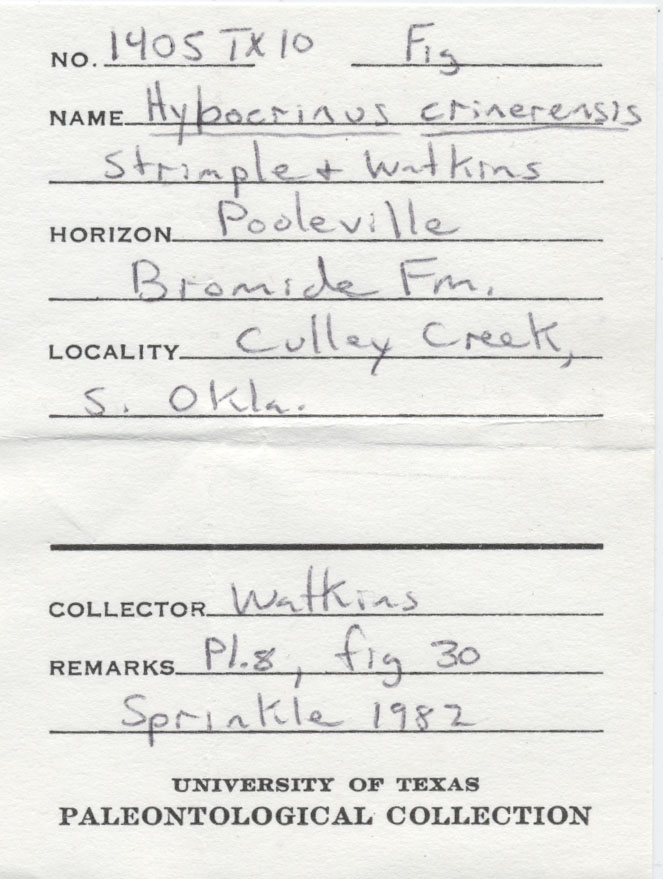 NO. 1405 TX 10 Fig
NAME Hybocrinus crinerensis
Strimple + Watkins
HORIZON Pooleville
Bromide Fm.
LOCALITY Culley Creek,
S. Okla.
COLLECTOR Watkins
REMARKS Pl.8, fig 30
Sprinkle 1982
UNIVERSITY OF TEXAS
PALEONTOLOGICAL COLLECTION